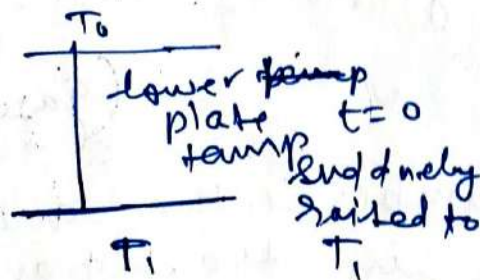 T0
lower temp
plate t = 0
temp
suddnely
raised to
T1 T1